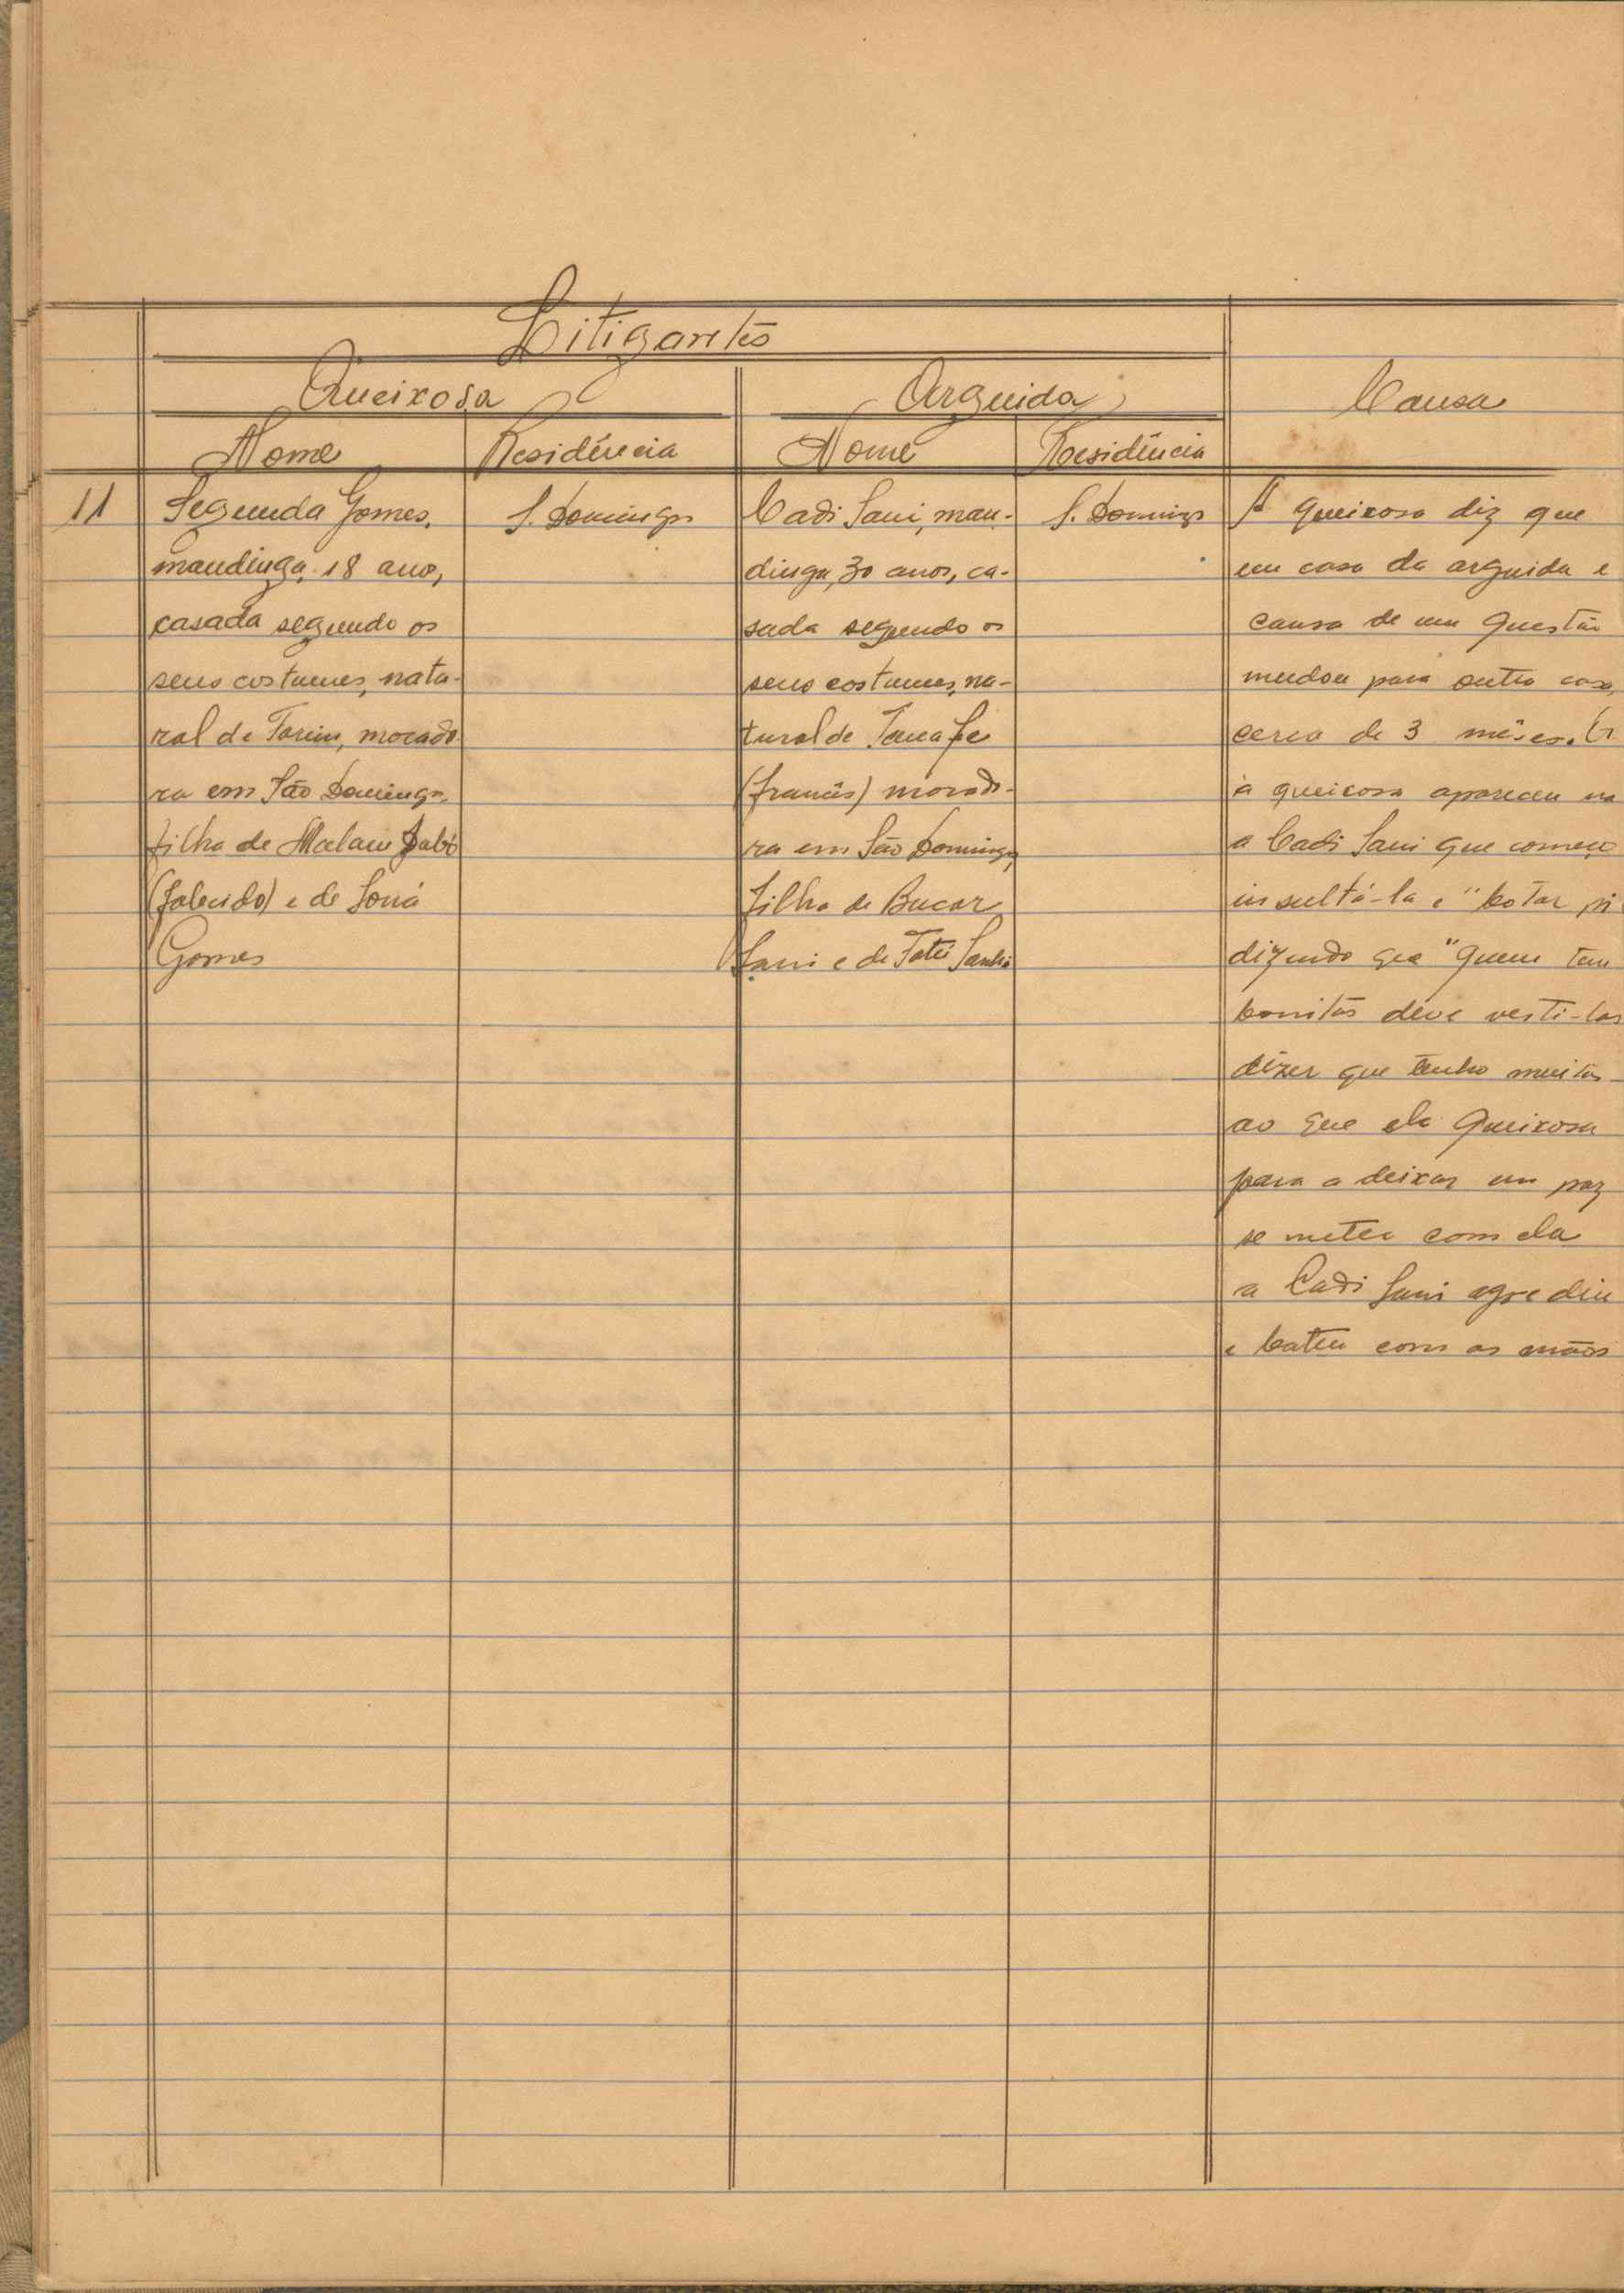 Litigantes
Queixosa
Arguida
Causa
Nome
Residência
Nome
Residência
11
Segunda Gomes,
mandinga, 18 ano,
casada segundo os
seus costumes, natu-
ral de Farim, morado-
ra em São Domingos,
filha de Malam Dabó
(falecido) e de
Gomes
S. Domingos
Cadi Sani, man-
dinga, 30 anos, ca-
sada segundo os
seus costumes, na-
tural de
(francês) morado-
ra em São Domingos,
filha de Bucar
Sani e de Fati
S. Domingos
A queixosa diz que
em casa da arguida e
causa de um questão
mudou para outra casa,
cerca de 3 mêses.
à queixosa apareceu na
a Cadi Sani que começo
insultá-la e "botar pi
dizendo que "quem tem
bonitos deve vesti-los
dizer que tenho muitos
ao que ela queixosa
para a deixar em paz
se meter com ela
a Cadi Sani agrediu
e bateu com as mãos